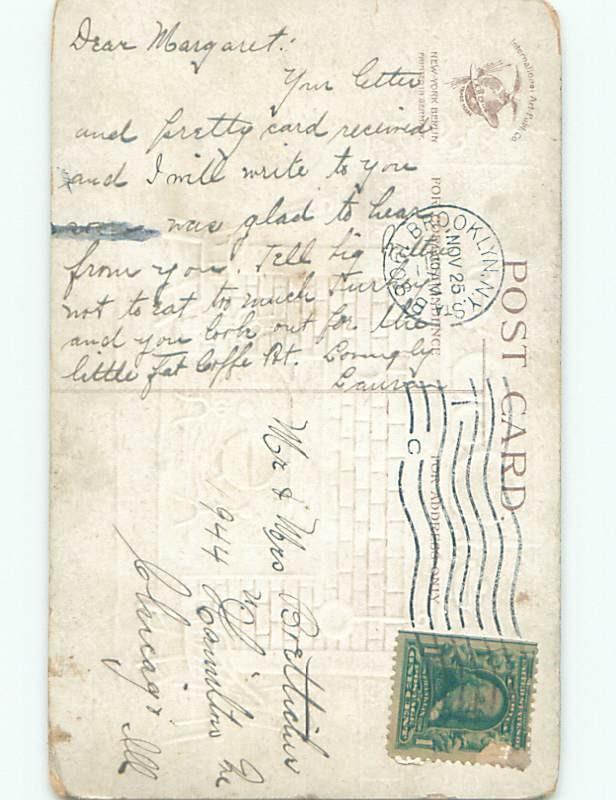 Dear Margaret:
Your letter
and pretty card received
and I will write to you
was glad to hear
from you. Tell big
not to eat too much Turkey
and you look out for the
little Fat Coffe Pot. Lovingly
International Art Publ. Co.
NEW-YORK BERLIN
PRINTED IN GERMANY
POST CARD
FOR CORRESPONDENCE
FOR ADDRESS ONLY
BROOKLYN, N.Y.
NOV 25
C
Mr & Mrs
1944 Hamilton
Chicago Ill
1 1